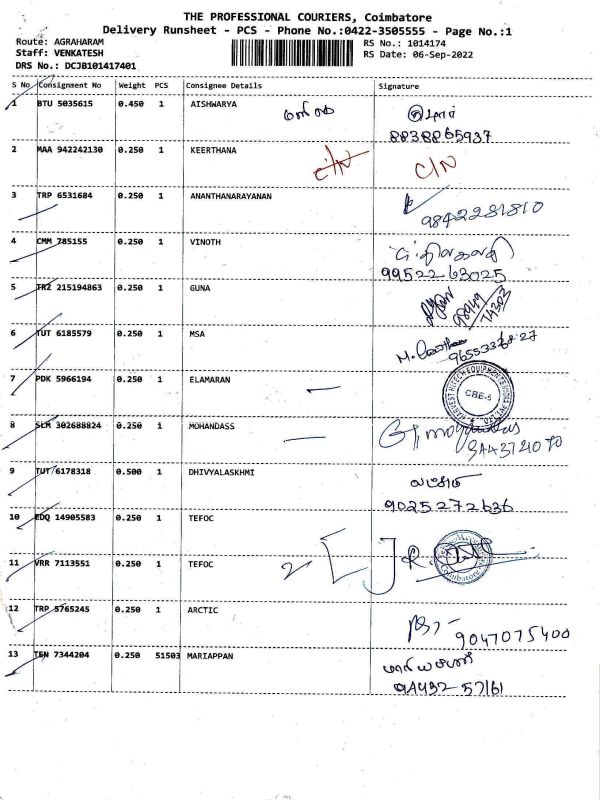 THE PROFESSIONAL COURIERS, Coimbatore
Delivery Runsheet - PCS - Phone No.:0422-3505555 - Page No.:1
Route: AGRAHARAM RS No.: 1014174
Staff: VENKATESH RS Date: 06-Sep-2022
DRS No.: DCJB101417401
S No Consignment No Weight PCS Consignee Details Signature
1 BTU 5035615 0.450 1 AISHWARYA
8838865937
2 MAA 942242130 0.250 1 KEERTHANA C/N C/N
3 TRP 6531684 0.250 1 ANANTHANARAYANAN
9842281810
4 CMM 785155 0.250 1 VINOTH
9952263025
5 TRZ 215194863 0.250 1 GUNA
6 TUT 6185579 0.250 1 MSA
7 PDK 5966194 0.250 1 ELAMARAN
CBE-5
8 SLM 302688824 0.250 1 MOHANDASS
9 TUT 6178318 0.500 1 DHIVYALASKHMI
லட்சுமி
9025272636
10 EDQ 14905583 0.250 1 TEFOC
11 VRR 7113551 0.250 1 TEFOC
Coimbatore
12 TRP 5765245 0.250 1 ARCTIC
9047075400
13 TEN 7344204 0.250 51503 MARIAPPAN
மாரியப்பன்
94432 57161